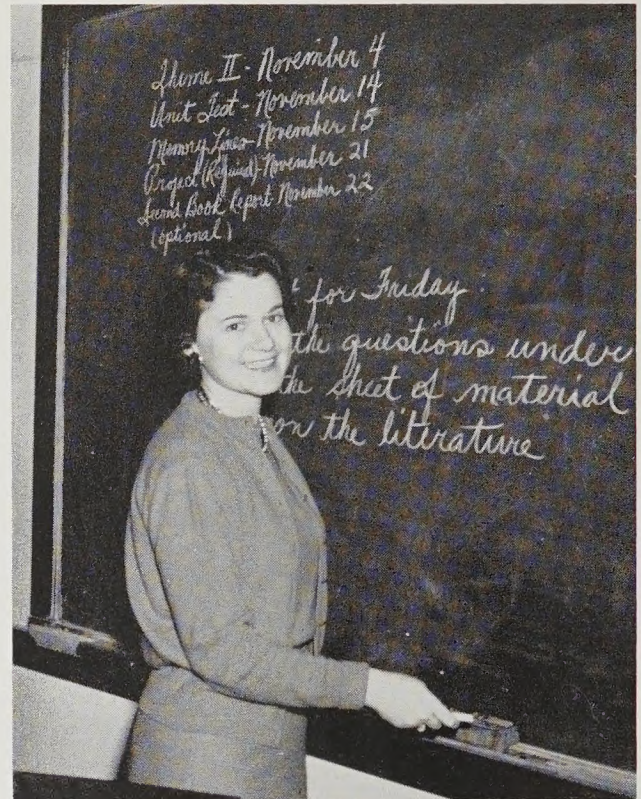 Theme II - November 4
Unit Test - November 14
Memory Lines - November 15
Project (Required) - November 21
Second Book Report - November 22
(optional)
for Friday.
the questions under
the sheet of material
on the literature